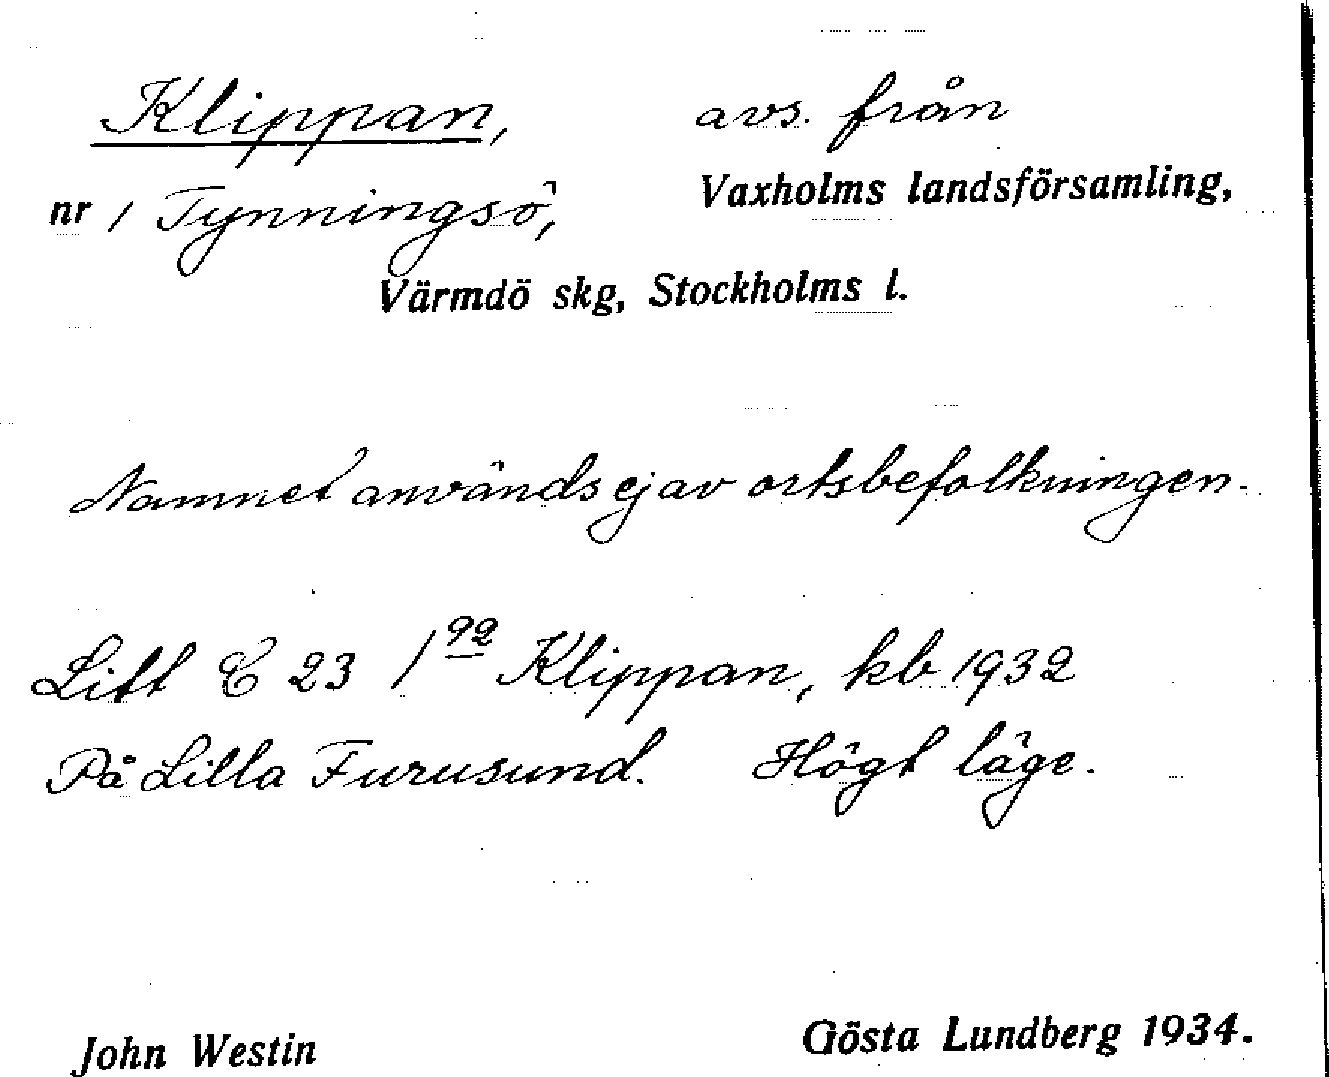 Klippan, avs. från
nr 1 Tynningsö, Vaxholms landsförsamling,
Värmdö skg, Stockholms l.
Namnet används ej av ortsbefolkningen.
Litt C 23 1 92 Klippan, kb 1932
På Lilla Furusund. Högt läge.
John Westin Gösta Lundberg 1934.